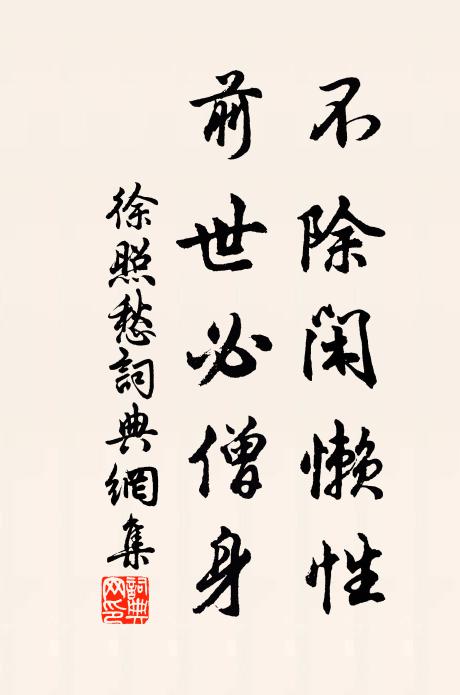 不除閑懶性
前世必僧身
徐照愁詞典網集
詞典網印